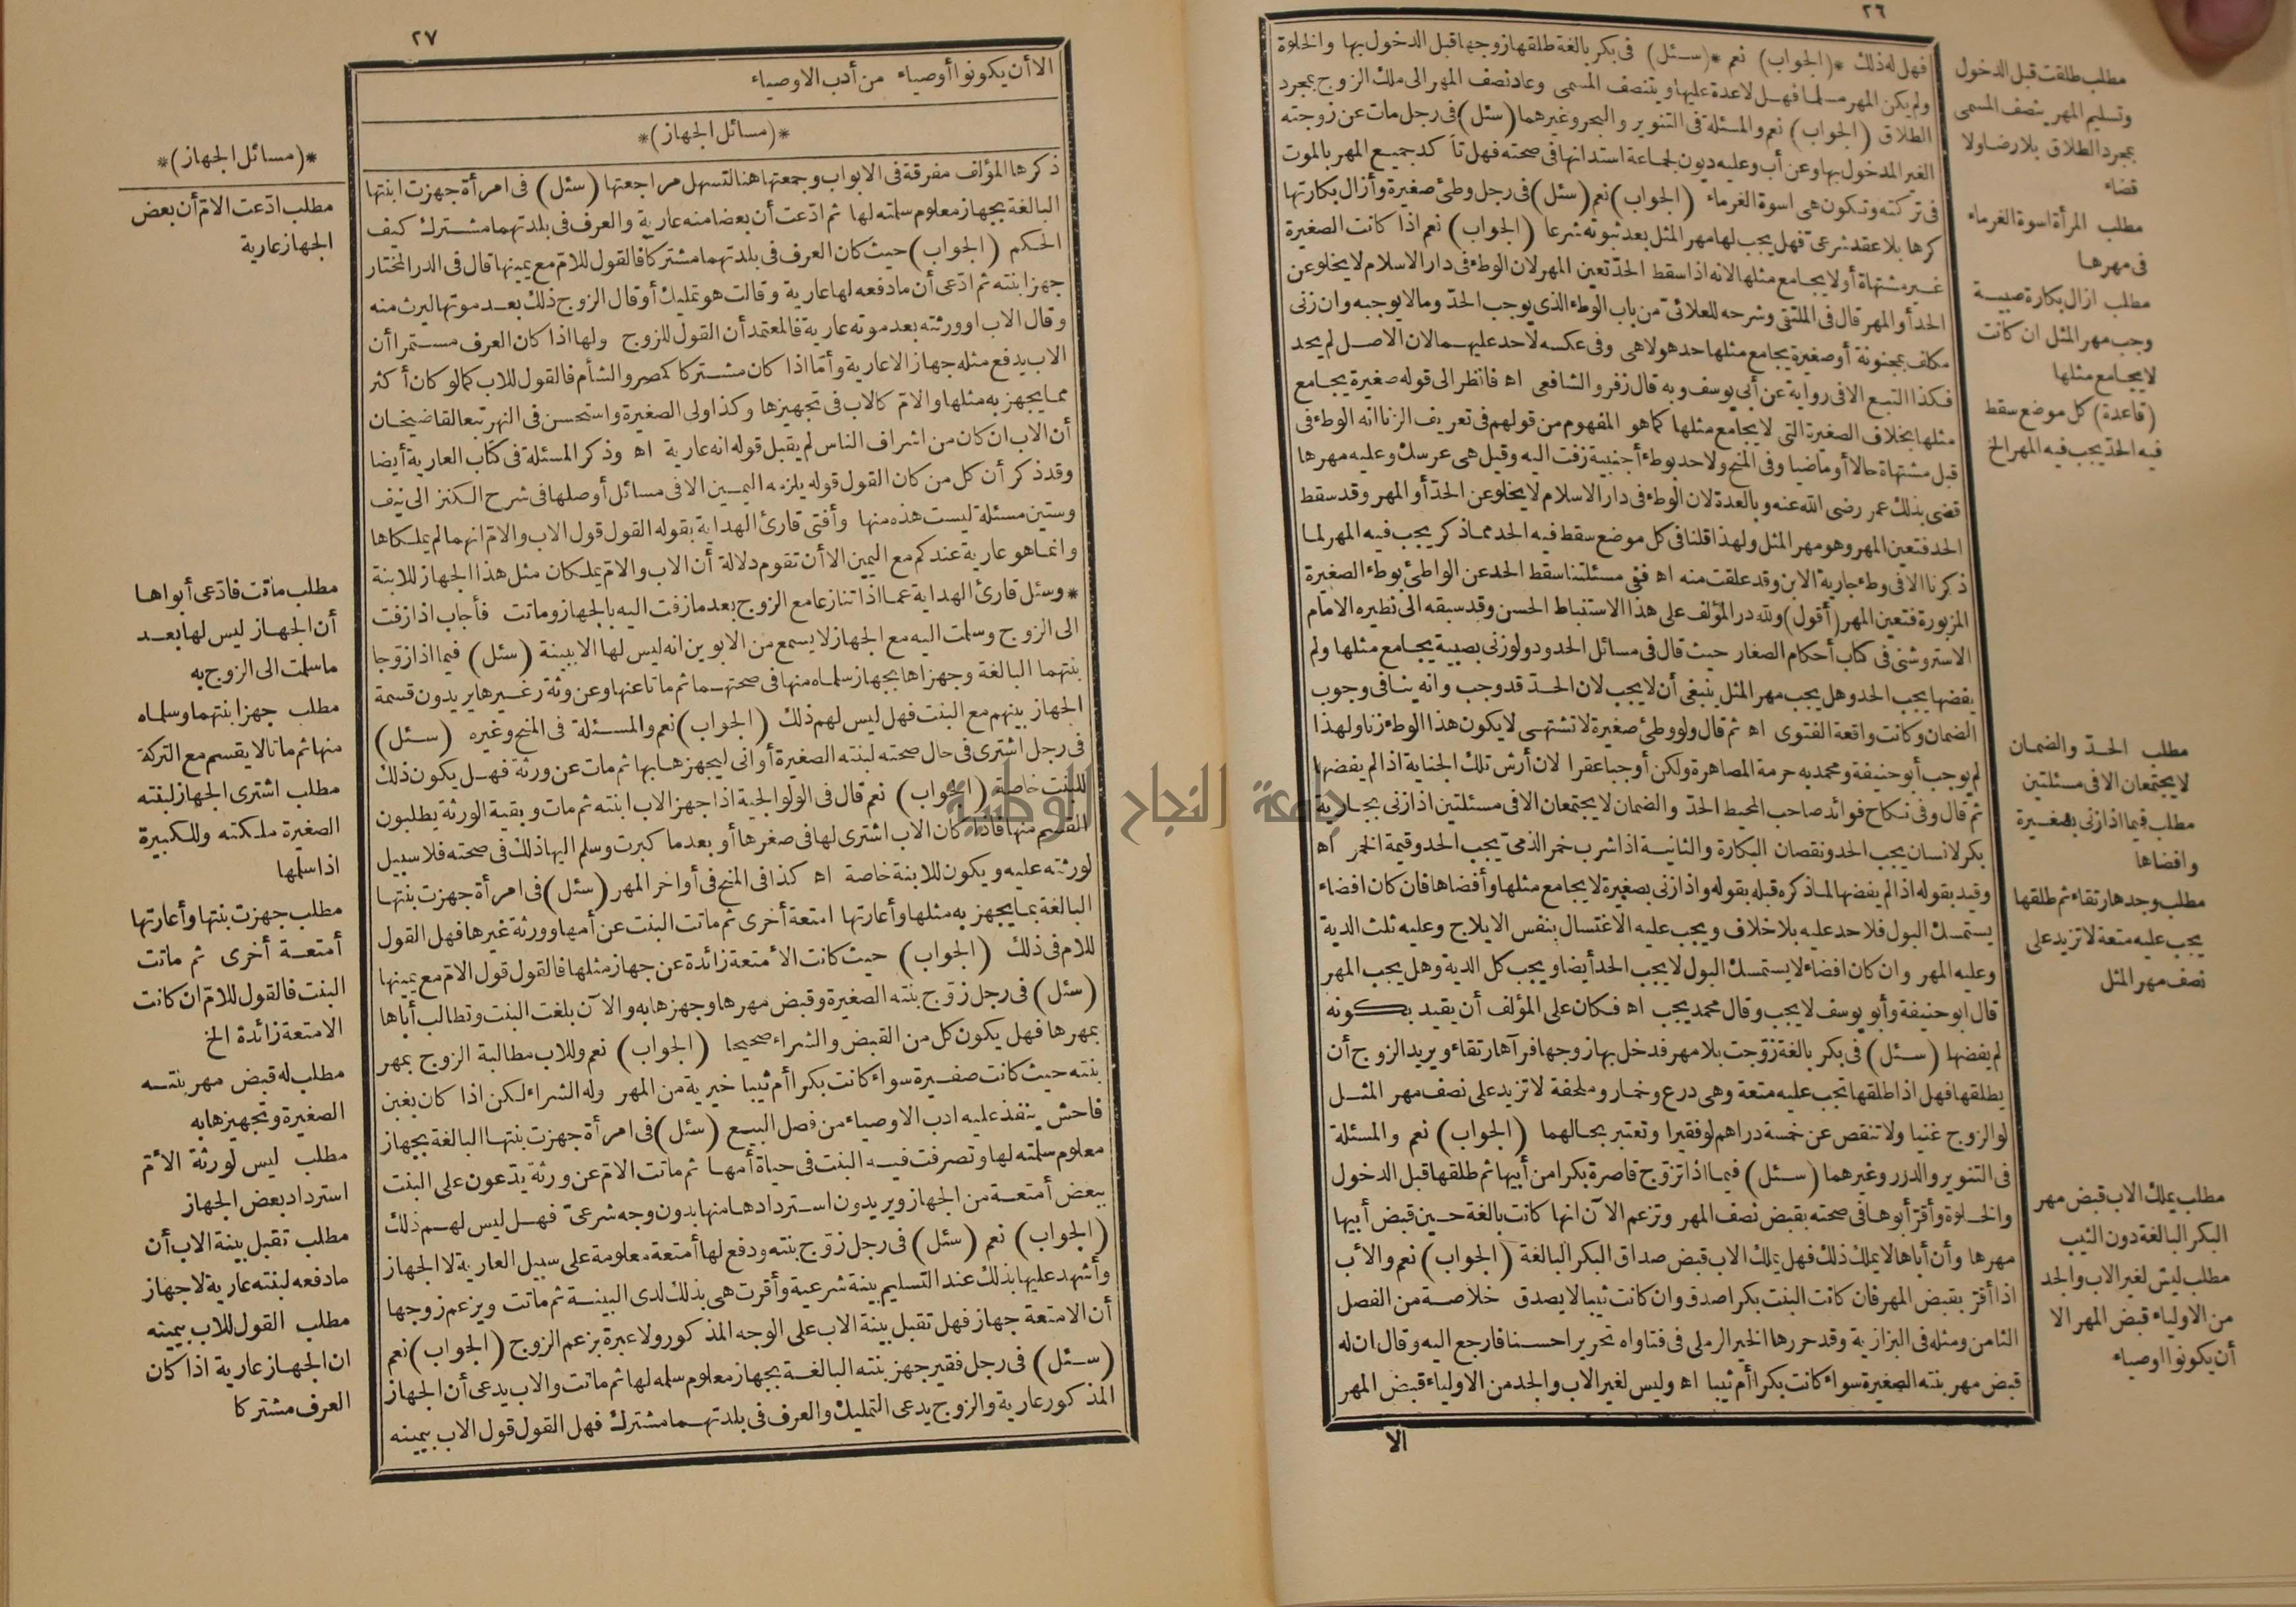 ٢٦
فهل له ذلك *(الجواب) نعم *(سئل) فى بكر بالغة طلقها زوجها قبل الدخول بها والخلوة
ولم يكن المهر مسلما فهل لاعدة عليها ويتنصف المسمى وعاد نصف المهر الى ملك الزوج بمجرد
الطلاق (الجواب) نعم والمسئلة فى التنوير والبحر وغيرهما (سئل) فى رجل مات عن زوجته
الغير المدخول بها وعن أب وعليه ديون لجماعة استدانها فى صحته فهل تأكد جميع المهر بالموت
فى تركته وتكون هى اسوة الغرماء (الجواب) نعم (سئل) فى رجل وطئ صغيرة وأزال بكارتها
كرها بلا عقد شرعىّ فهل يجب لها مهر المثل بعد ثبوته شرعا (الجواب) نعم اذا كانت الصغيرة
غير مشتهاة أولا يجامع مثلها لانه اذا سقط الحدّ تعين المهر لان الوطء فى دار الاسلام لا يخلو عن
الحد أو المهر قال فى الملتقى وشرحه للعلائى من باب الوطء الذى يوجب الحدّ وما لا يوجبه وان زنى
مكلف بمجنونة أو صغيرة يجامع مثلها حد هو لا هى وفى عكسه لا حد عليهما لان الاصل لم يحد
فكذا التبع الا فى رواية عن أبى يوسف وبه قال زفر والشافعى اه فانظر الى قوله صغيرة يجامع
مثلها بخلاف الصغيرة التى لا يجامع مثلها كما هو المفهوم من قولهم فى تعريف الزنا انه الوطء فى
قبل مشتهاة حالا أو ماضيا وفى المنح ولا حد بوطء أجنبية زفت اليه وقيل هى عرسك وعليه مهرها
قضى بذلك عمر رضى الله عنه وبالعدة لان الوطء فى دار الاسلام لا يخلو عن الحدّ أو المهر وقد سقط
الحد فتعين المهر وهو مهر المثل ولهذا قلنا فى كل موضع سقط فيه الحد مما ذكر يجب فيه المهر لما
ذكرنا الا فى وطء جارية الابن وقد علقت منه اه ففى مسئلتنا سقط الحد عن الواطئ بوطء الصغيرة
المزبورة فتعين المهر (أقول) ولله در المؤلف على هذا الاستنباط الحسن وقد سبقه الى نظيره الامام
الاستروشنى فى كتاب أحكام الصغار حيث قال فى مسائل الحدود ولو زنى بصبية يجامع مثلها ولم
يفضها يجب الحد وهل يجب مهر المثل ينبغى أن لا يجب لان الحدّ قد وجب وانه ينافى وجوب
الضمان وكانت واقعة الفتوى اه ثم قال ولو وطئ صغيرة لا تشتهى لا يكون هذا الوطء زنا ولهذا
لم يوجب أبو حنيفة ومحمد به حرمة المصاهرة ولكن أوجبا عقرا لان أرش تلك الجناية اذا لم يفضها
ثم قال وفى نكاح فوائد صاحب المحيط الحدّ والضمان لا يجتمعان الا فى مسئلتين اذا زنى بجارية
بكر لانسان يجب الحد ونقصان البكارة والثانية اذا شرب خمر الذمىّ يجب الحد وقيمة الخمر اه
وقيد بقوله اذا لم يفضها لما ذكره قبله بقوله واذا زنى بصغيرة لا يجامع مثلها وأفضاها فان كان افضاء
يستمسك البول فلا حد عليه بلا خلاف ويجب عليه الاغتسال بنفس الايلاج وعليه ثلث الدية
وعليه المهر وان كان افضاء لا يستمسك البول لا يجب الحد أيضا ويجب كل الدية وهل يجب المهر
قال ابو حنيفة وأبو يوسف لا يجب وقال محمد يجب اه فكان على المؤلف أن يقيد بكونه
لم يفضها (سئل) فى بكر بالغة زوّجت بلا مهر فدخل بها زوجها فرآها رتقاء ويريد الزوج أن
يطلقها فهل اذا طلقها تجب عليه متعة وهى درع وخمار وملحفة لا تزيد على نصف مهر المثل
لو الزوج غنيا ولا تنقص عن خمسة دراهم لو فقيرا وتعتبر بحالهما (الجواب) نعم والمسئلة
فى التنوير والدرر وغيرهما (سئل) فيما اذا تزوّج قاصرة بكرا من أبيها ثم طلقها قبل الدخول
والخلوة وأقرّ أبوها فى صحته بقبض نصف المهر وتزعم الآن انها كانت بالغة حين قبض أبيها
مهرها وأن أباها لا يملك ذلك فهل يملك الاب قبض صداق البكر البالغة (الجواب) نعم والأب
اذا أقرّ بقبض المهر فان كانت البنت بكرا صدق وان كانت ثيبا لا يصدق خلاصة من الفصل
الثامن ومثله فى البزازية وقد حررها الخير الرملى فى فتاواه تحريرا حسنا فارجع اليه وقال ان له
قبض مهر بنته الصغيرة سواء كانت بكرا أم ثيبا اه وليس لغير الاب والجد من الاولياء قبض المهر
الا
مطلب طلقت قبل الدخول
وتسليم المهر ينصف المسمى
بمجرد الطلاق بلا رضا ولا
قضاء
مطلب المرأة اسوة الغرماء
فى مهرها
مطلب ازال بكارة صبية
وجب مهر المثل ان كانت
لا يجامع مثلها
(قاعدة) كل موضع سقط
فيه الحدّ يجب فيه المهر الخ
مطلب الحدّ والضمان
لا يجتمعان الا فى مسئلتين
مطلب فيما اذا زنى بصغيرة
وافضاها
مطلب وجدها رتقاء ثم طلقها
يجب عليه متعة لا تزيد على
نصف مهر المثل
مطلب يملك الاب قبض مهر
البكر البالغة دون الثيب
مطلب ليس لغير الاب والجد
من الاولياء قبض المهر الا
أن يكونوا اوصياء
٢٧
الا أن يكونوا أوصياء من أدب الاوصياء
*(مسائل الجهاز)*
ذكرها المؤلف مفرقة فى الابواب وجمعتها هنا لتسهل مراجعتها (سئل) فى امرأة جهزت ابنتها
البالغة بجهاز معلوم سلمته لها ثم ادّعت أن بعضا منه عارية والعرف فى بلدتهما مشترك كيف
الحكم (الجواب) حيث كان العرف فى بلدتهما مشتركا فالقول للامّ مع يمينها قال فى الدر المختار
جهز ابنته ثم ادّعى أن ما دفعه لها عارية وقالت هو تمليك أو قال الزوج ذلك بعد موتها ليرث منه
وقال الاب او ورثته بعد موته عارية فالمعتمد أن القول للزوج ولها اذا كان العرف مستمرا أن
الاب يدفع مثله جهازا لا عارية وأمّا اذا كان مشتركا كمصر والشأم فالقول للاب كما لو كان أكثر
مما يجهز به مثلها والامّ كالاب فى تجهيزها وكذا ولى الصغيرة واستحسن فى النهر تبعا لقاضيخان
أن الاب ان كان من اشراف الناس لم يقبل قوله انه عارية اه وذكر المسئلة فى كتاب العارية أيضا
وقد ذكر أن كل من كان القول قوله يلزمه اليمين الا فى مسائل أوصلها فى شرح الكنز الى نيف
وستين مسئلة ليست هذه منها وأفتى قارئ الهداية بقوله القول قول الاب والامّ انهما لم يملكاها
وانما هو عارية عندكم مع اليمين الا أن تقوم دلالة أن الاب والام يملكان مثل هذا الجهاز للابنة
*وسئل قارئ الهداية عما اذا تنازعا مع الزوج بعد ما زفت اليه بالجهاز وماتت فأجاب اذا زفت
الى الزوج وسلمت اليه مع الجهاز لا يسمع من الابوين انه ليس لها الا ببينة (سئل) فيما اذا زوّجا
بنتهما البالغة وجهزاها بجهاز سلماه منها فى صحتهما ثم ماتا عنها وعن ورثة غيرها يريدون قسمة
الجهاز بينهم مع البنت فهل ليس لهم ذلك (الجواب) نعم والمسئلة فى المنح وغيره (سئل)
فى رجل اشترى فى حال صحته لبنته الصغيرة أوانى ليجهزها بها ثم مات عن ورثة فهل يكون ذلك
للبنت خاصة (الجواب) نعم قال فى الولوالجية اذا جهز الاب ابنته ثم مات وبقية الورثة يطلبون
القسم منها فاذا كان الاب اشترى لها فى صغرها أو بعد ما كبرت وسلم اليها ذلك فى صحته فلا سبيل
لورثته عليه ويكون للابنة خاصة اه كذا فى المنح فى أواخر المهر (سئل) فى امرأة جهزت بنتها
البالغة بما يجهز به مثلها وأعارتها امتعة أخرى ثم ماتت البنت عن أمها وورثة غيرها فهل القول
للام فى ذلك (الجواب) حيث كانت الأمتعة زائدة عن جهاز مثلها فالقول قول الام مع يمينها
(سئل) فى رجل زوّج بنته الصغيرة وقبض مهرها وجهزها به والآن بلغت البنت وتطالب أباها
بمهرها فهل يكون كل من القبض والشراء صحيحا (الجواب) نعم وللاب مطالبة الزوج بمهر
بنته حيث كانت صغيرة سواء كانت بكرا أم ثيبا خيرية من المهر وله الشراء لكن اذا كان بغبن
فاحش ينفذ عليه ادب الاوصياء من فصل البيع (سئل) فى امرأة جهزت بنتها البالغة بجهاز
معلوم سلمته لها وتصرفت فيه البنت فى حياة أمها ثم ماتت الام عن ورثة يدّعون على البنت
ببعض أمتعة من الجهاز ويريدون استردادها منها بدون وجه شرعىّ فهل ليس لهم ذلك
(الجواب) نعم (سئل) فى رجل زوّج بنته ودفع لها أمتعة معلومة على سبيل العارية لا الجهاز
وأشهد عليها بذلك عند التسليم بينة شرعية وأقرت هى بذلك لدى البينة ثم ماتت ويزعم زوجها
أن الامتعة جهاز فهل تقبل بينة الاب على الوجه المذكور ولا عبرة بزعم الزوج (الجواب) نعم
(سئل) فى رجل فقير جهز بنته البالغة بجهاز معلوم سلمه لها ثم ماتت والاب يدعى أن الجهاز
المذكور عارية والزوج يدعى التمليك والعرف فى بلدتهما مشترك فهل القول قول الاب بيمينه
*(مسائل الجهاز)*
مطلب ادّعت الامّ أن بعض
الجهاز عارية
مطلب ماتت فادّعى أبواها
أن الجهاز ليس لها بعد
ما سلمت الى الزوج به
مطلب جهزا بنتهما وسلماه
منها ثم ماتا لا يقسم مع التركة
مطلب اشترى الجهاز لبنته
الصغيرة ملكته وللكبيرة
اذا سلمها
مطلب جهزت بنتها وأعارتها
أمتعة أخرى ثم ماتت
البنت فالقول للامّ ان كانت
الامتعة زائدة الخ
مطلب له قبض مهر بنته
الصغيرة وتجهيزها به
مطلب ليس لورثة الأمّ
استرداد بعض الجهاز
مطلب تقبل بينة الاب أن
ما دفعه لبنته عارية لا جهاز
مطلب القول للاب بيمينه
ان الجهاز عارية اذا كان
العرف مشتركا
جامعة النجاح الوطنية